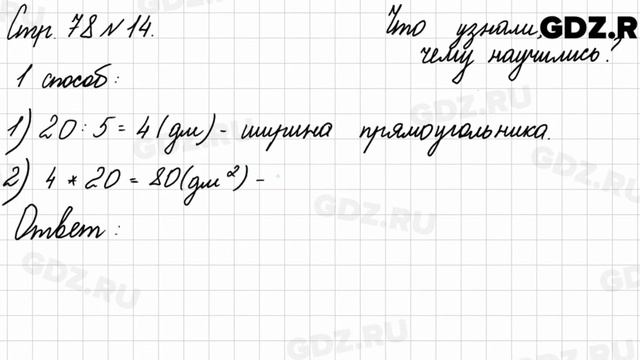 Стр. 78 № 14.
Что узнали,
чему научились?
GDZ.R
1 способ:
1) 20 : 5 = 4 (дм) - ширина прямоугольника.
2) 4 * 20 = 80 (дм²) -
Ответ :
GDZ.RU
GDZ.RU
GDZ.RU
GDZ.RU
GDZ.RU
GDZ.RU